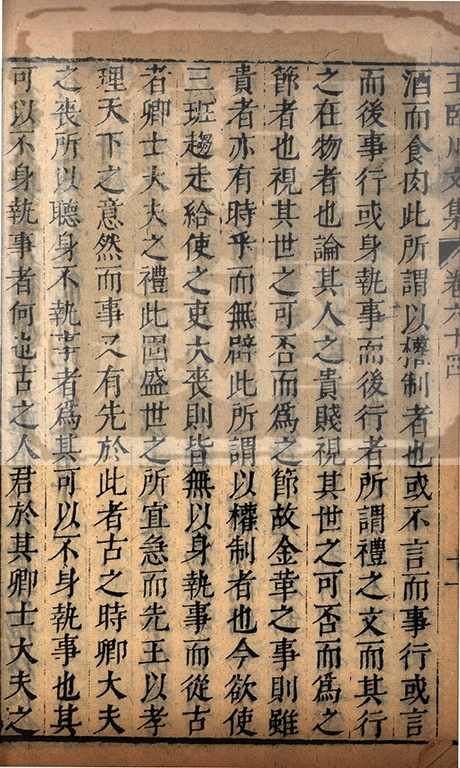 王臨川文集 卷六十四 十一
酒而食肉此所謂以權制者也或不言而事行或言
而後事行或身執事而後行者所謂禮之文而其行
之在物者也論其人之貴賤視其世之可否而爲之
節者也視其世之可否而爲之節故金革之事則雖
貴者亦有時乎而無辟此所謂以權制者也今欲使
三班趨走給使之吏大喪則皆無以身執事而從古
者卿士大夫之禮此固盛世之所宜急而先王以孝
理天下之意然而事又有先於此者古之時卿大夫
之喪所以聽身不執事者爲其可以不身執事也其
可以不身執事者何也古之人君於其卿士大夫之